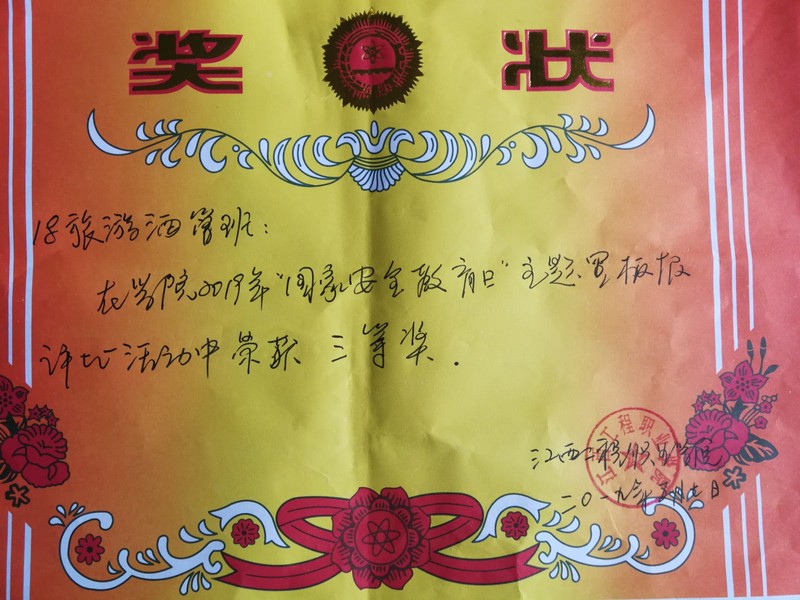 奖状
18旅游酒管班：
在学院2019年“国家安全教育日”主题黑板报
评比活动中荣获 三等奖.
江西工程职业学院
二〇一九年